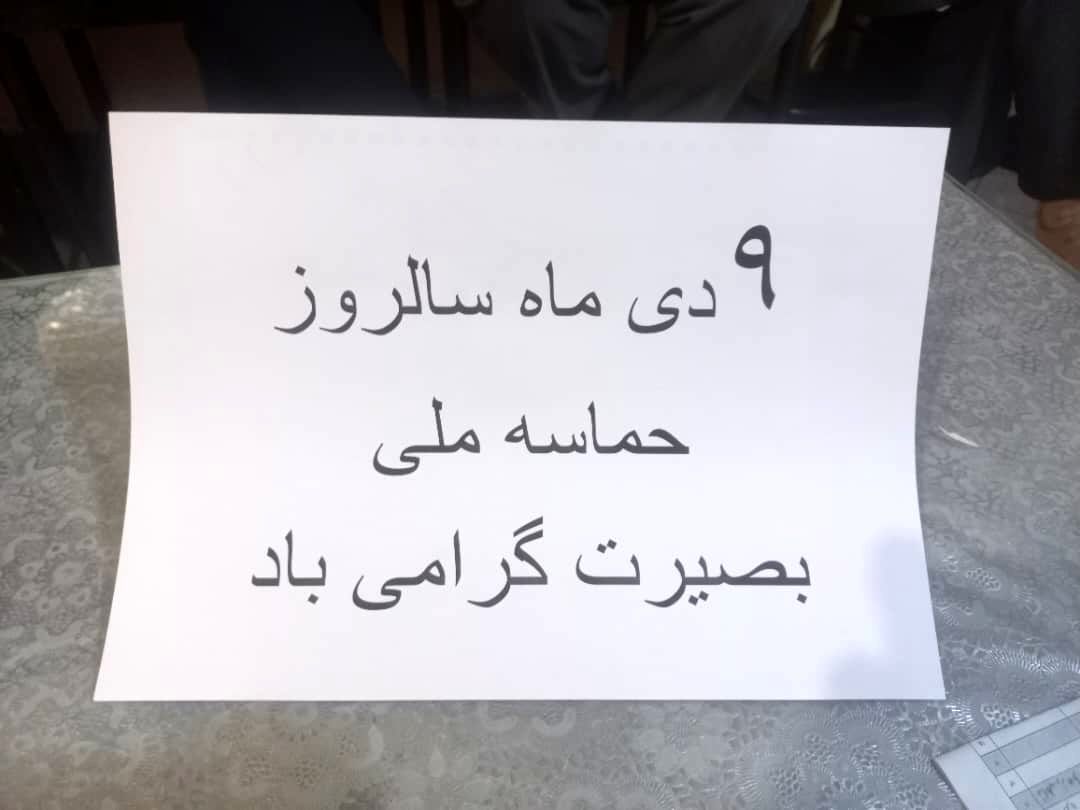 ۹ دی ماه سالروز
حماسه ملی
بصیرت گرامی باد